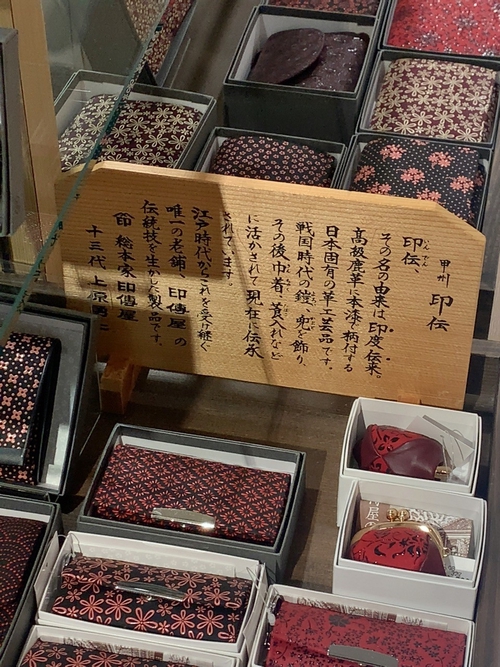 甲州 印伝
印伝、
その名の由来は印度伝来。
高級鹿革に本漆で柄付する
日本固有の革工芸品です。
戦国時代の鎧、兜を飾り、
その後巾着、莨入れなど
に活かされて現在に伝承
されています。
江戸時代からこれを受け継ぐ
唯一の老舗、印傳屋の
伝統技を生かした製品です。
総本家印傳屋
十三代 上原勇